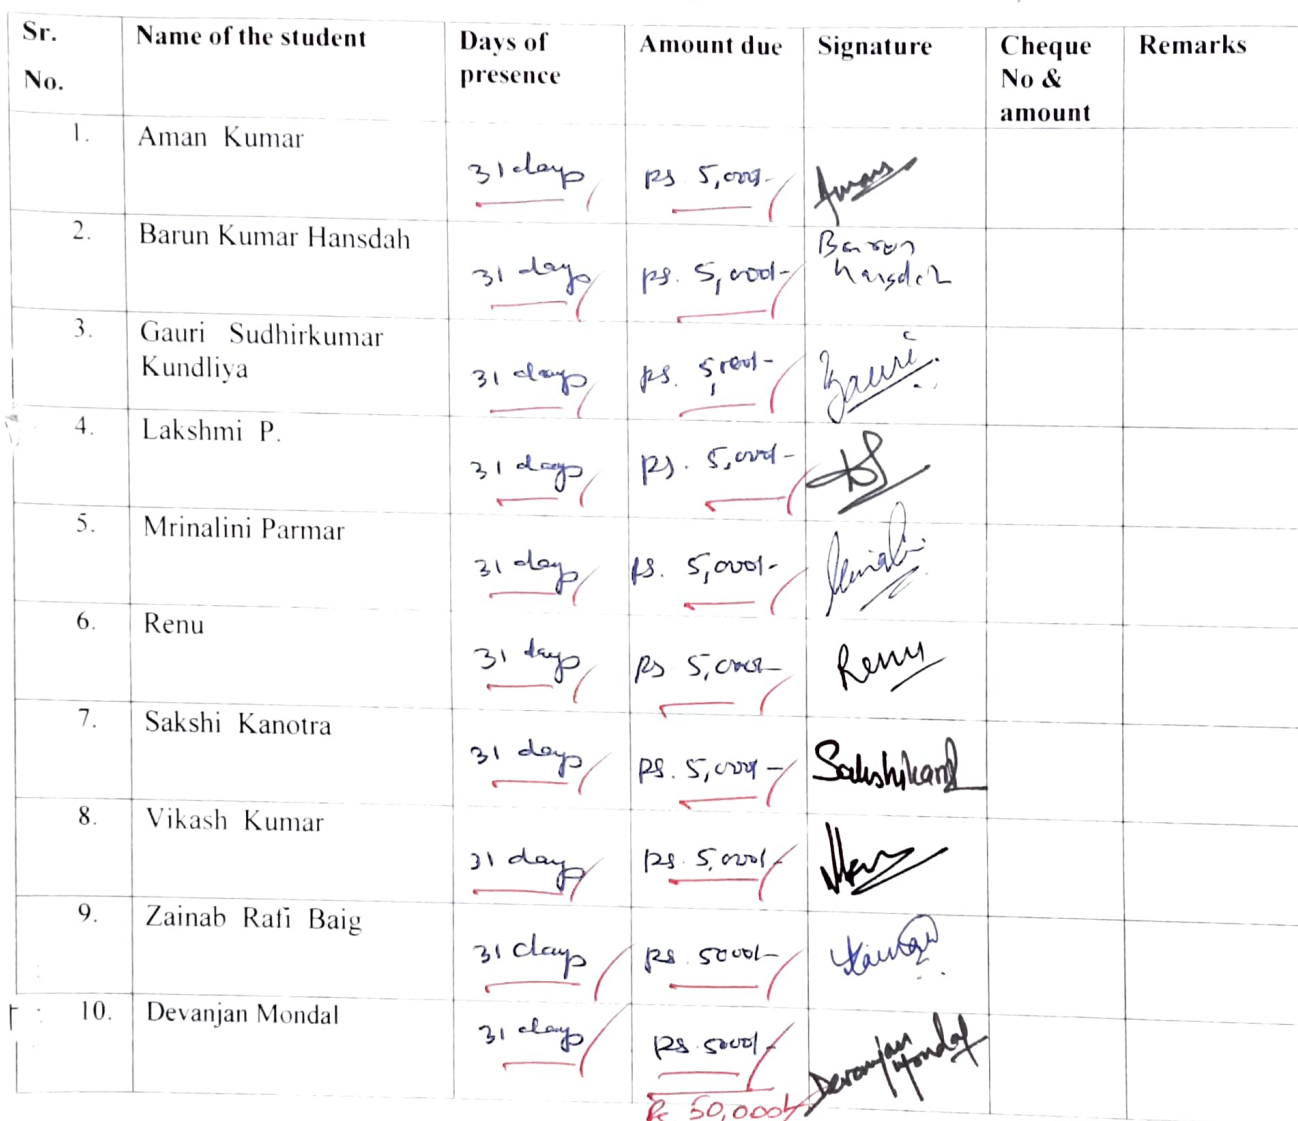 Sr. No. Name of the student Days of presence Amount due Signature Cheque No & amount Remarks
1. Aman Kumar 31 days Rs 5,000/- Aman
2. Barun Kumar Hansdah 31 days Rs. 5,000/- Barun Hansdah
3. Gauri Sudhirkumar Kundliya 31 days Rs. 5,000/- Gauri
4. Lakshmi P. 31 days Rs. 5,000/-
5. Mrinalini Parmar 31 days Rs. 5,000/-
6. Renu 31 days Rs 5,000/- Renu
7. Sakshi Kanotra 31 days Rs. 5,000/-
8. Vikash Kumar 31 days Rs. 5,000/-
9. Zainab Rafi Baig 31 days Rs. 5000/-
10. Devanjan Mondal 31 days Rs. 5000/- Devanjan Mondal
Rs 50,000/-